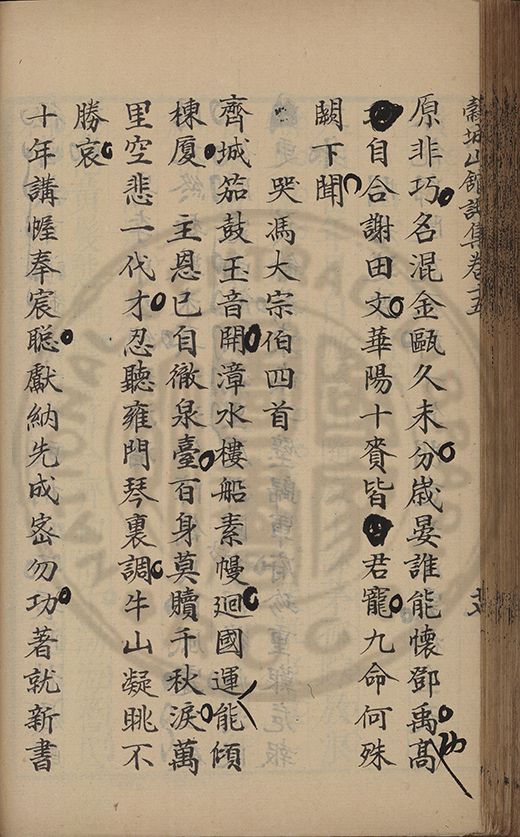 穀城山館詩集卷十五
原非巧名混金甌久未分歲晏誰能懷鄧禹高
自合謝田文華陽十賚皆君寵九命何殊
闕下聞
哭馮大宗伯四首
齊城笳鼓玉音開漳水樓船素幔迴國運能傾
棟廈 主恩已自徹泉臺百身莫贖千秋淚萬
里空悲一代才忍聽雍門琴裏調牛山凝眺不
勝哀
十年講幄奉宸聰獻納先成密勿功著就新書